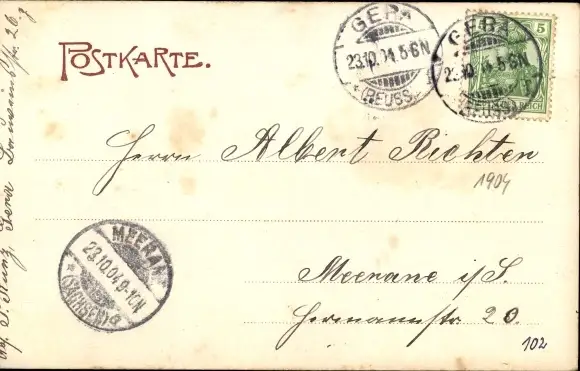 POSTKARTE.
GERA
23.10.04.5-6N
*(REUSS)
GERA
23.10.04.5-6N
(REUSS)
5
REICH
Herrn Albert Richter
1904
MEERANE
23.10.04.9-10N
*(SACHSEN)
Meerane i/S.
Hermannstr. 20.
102
Gera